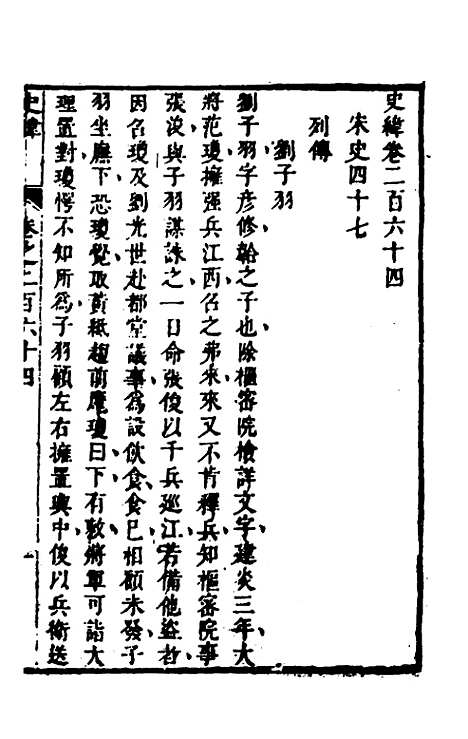 史緯卷二百六十四
宋史四十七
列傳
劉子羽
劉子羽字彥修韐之子也除樞密院檢詳文字建炎三年大
將范瓊擁强兵江西召之弗來來又不肯釋兵知樞密院事
張浚與子羽謀誅之一日命張俊以千兵巡江若備他盜者
因召瓊及劉光世赴都堂議事爲設飲食食已相顧未發子
羽坐廡下恐瓊覺取黃紙趨前麾瓊曰下有敕將軍可詣大
理置對瓊愕不知所爲子羽顧左右擁置輿中俊以兵衛送
史緯
卷之二百六十四
一